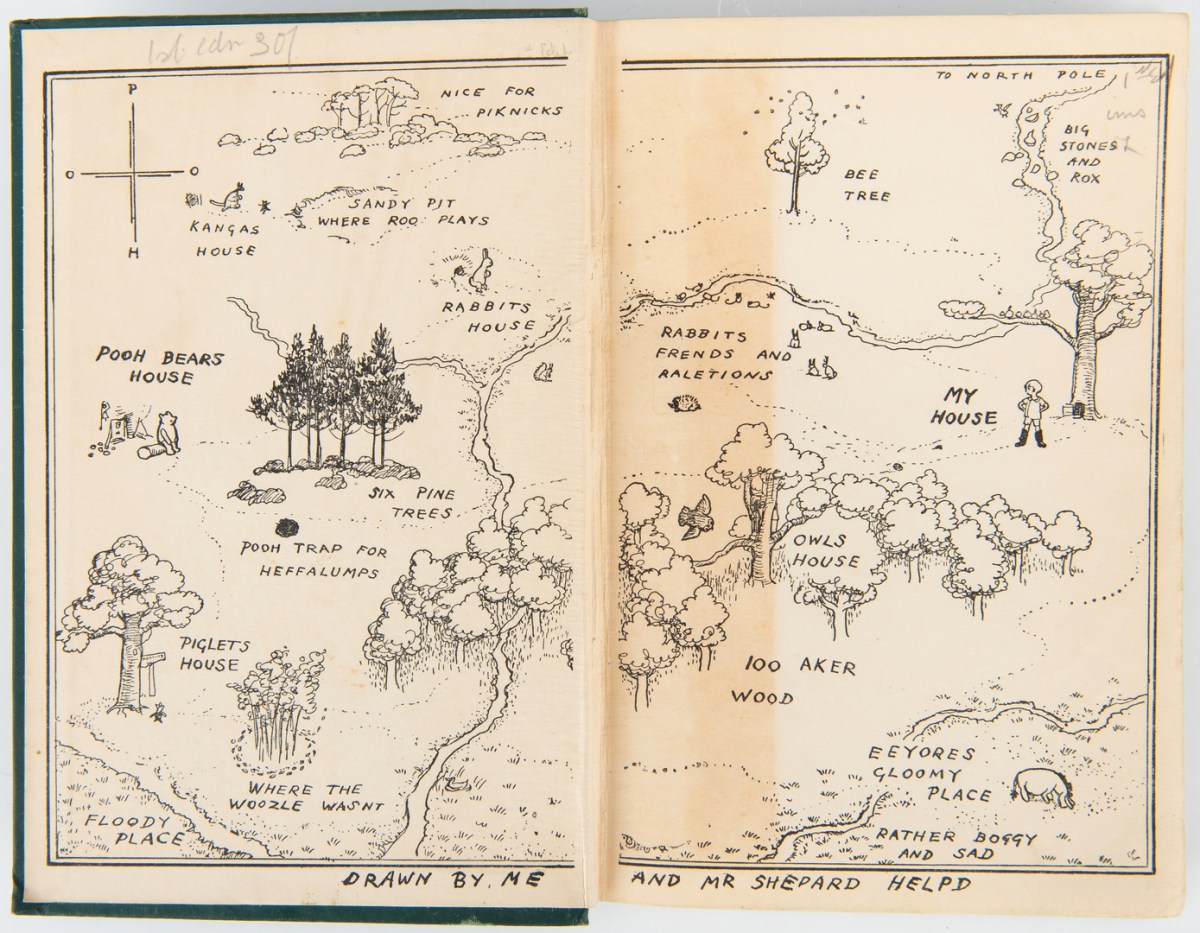 1st edn 30/
P
O
O
H
NICE FOR
PIKNICKS
SANDY PIT
WHERE ROO PLAYS
KANGAS
HOUSE
RABBITS
HOUSE
POOH BEARS
HOUSE
SIX PINE
TREES
POOH TRAP FOR
HEFFALUMPS
PIGLETS
HOUSE
WHERE THE
WOOZLE WASNT
FLOODY
PLACE
DRAWN BY ME
TO NORTH POLE
BIG
STONES
AND
ROX
BEE
TREE
RABBITS
FRENDS AND
RALETIONS
MY
HOUSE
OWLS
HOUSE
100 AKER
WOOD
EEYORES
GLOOMY
PLACE
RATHER BOGGY
AND SAD
AND MR SHEPARD HELPD